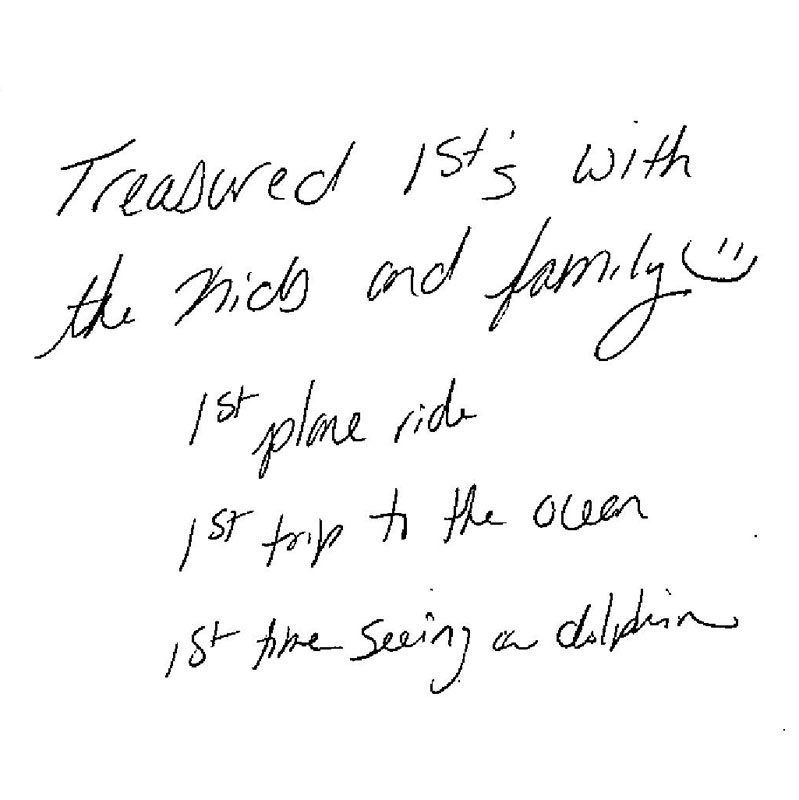 Treasured 1st's with
the kids and family
1st plane ride
1st trip to the ocean
1st time seeing a dolphin